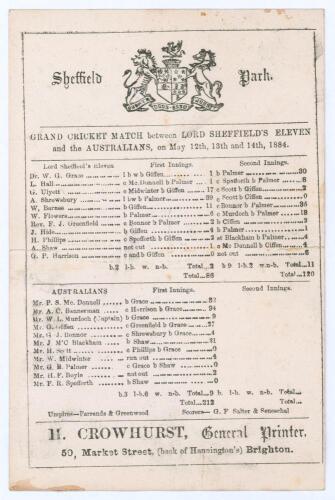 Sheffield Park.
GRAND CRICKET MATCH between LORD SHEFFIELD'S ELEVEN
and the AUSTRALIANS, on May 12th, 13th and 14th, 1884.
Lord Sheffield's Eleven First Innings. Second Innings.
Dr. W. G. Grace l b w b Giffen 1 b Palmer 30
L. Hall c Mc Donnell b Palmer 1 c Spofforth b Palmer 8
G. Ulyett c Midwinter b Giffen 17 c Scott b Giffen 2
A. Shrewsbury l b w b Palmer 39 c Scott b Giffen 0
W. Barnes b Giffen 11 c Bonnor b Palmer 36
W. Flowers b Palmer 6 c Murdoch b Palmer 18
Rev. F. J. Greenfield c Bonnor b Palmer 2 b Giffen
J. Hide b Giffen 4 b Giffen
H. Phillips c Spofforth b Giffen 1 st Blackham b Palmer
A. Shaw not out c Mc Donnell b Giffen
G. P. Harrison c and b Giffen 0 not out
b.2 l-b. w. n-b. Total 2 b 9 l-b 2 w. n-b. Total 11
Total 86 Total 120
AUSTRALIANS First Innings. Second Innings.
Mr. P. S. Mc Donnell b Grace
Mr. A. C. Bannerman c Harrison b Grace 94
Mr. W. L. Murdoch (Captain) b Grace 9
Mr. G. Giffen c Greenfield b Grace 27
Mr. G. J. Bonnor c Shrewsbury b Grace 4
Mr. J. M'C Blackham b Shaw 21
Mr. H. Scott c Phillips b Grace 0
Mr. W. Midwinter run out 4
Mr. G. E. Palmer c Grace b Shaw 0
Mr. H. F. Boyle not out 2
Mr. F. R. Spofforth b Shaw 0
b.3 l-b.6 w. n-b. Total 9 b. l-b. w. n-b. Total
Total 212 Total
Umpires—Farrands & Greenwood Scorers— G. F Salter & Seneschal
H. CROWHURST, General Printer,
50, Market Street, (back of Hannington's) Brighton.